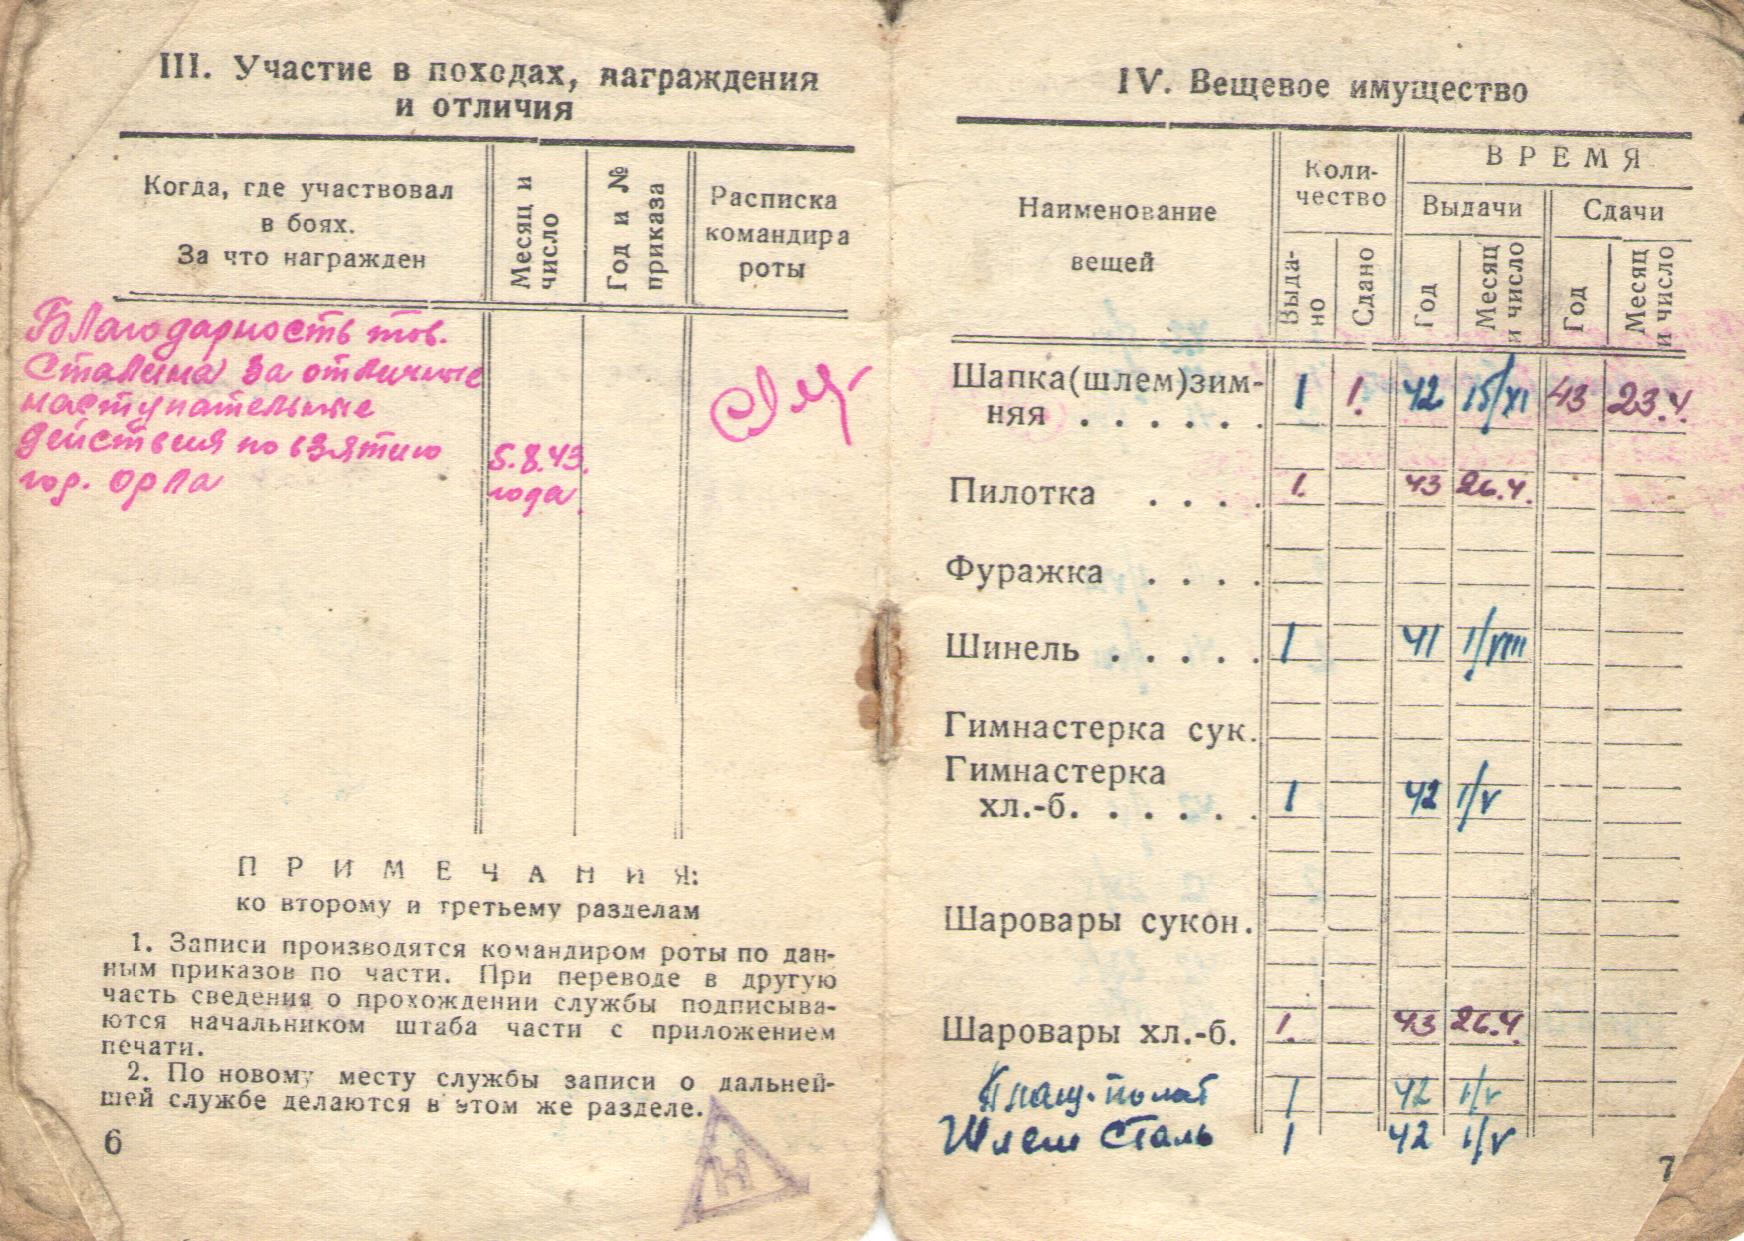 III. Участие в походах, награждения
и отличия
Когда, где участвовал
в боях.
За что награжден
Месяц и
число
Год и №
приказа
Расписка
командира
роты
Благодарность тов.
Сталина за отличные
наступательные
действия по взятию
гор. Орла
5.8.43.
года.
ПРИМЕЧАНИЯ:
ко второму и третьему разделам
1. Записи производятся командиром роты по дан-
ным приказов по части. При переводе в другую
часть сведения о прохождении службы подписыва-
ются начальником штаба части с приложением
печати.
2. По новому месту службы записи о дальней-
шей службе делаются в этом же разделе.
6
Н
IV. Вещевое имущество
Наименование
вещей
Коли-
чество
ВРЕМЯ
Выдачи
Сдачи
Выда-
но
Сдано
Год
Месяц
и число
Год
Месяц
и число
Шапка(шлем)зим-
няя . . . . . . 1 1. 42 15/XI 43 23.4.
Пилотка . . . . 1. 43 26.4.
Фуражка . . . .
Шинель . . . . . 1 41 1/VIII
Гимнастерка сук.
Гимнастерка
хл.-б. . . . . . 1 42 1/V
Шаровары сукон.
Шаровары хл.-б. 1. 43 26.4.
Плащ-палат 1 42 1/V
Шлем Сталь 1 42 1/V
7